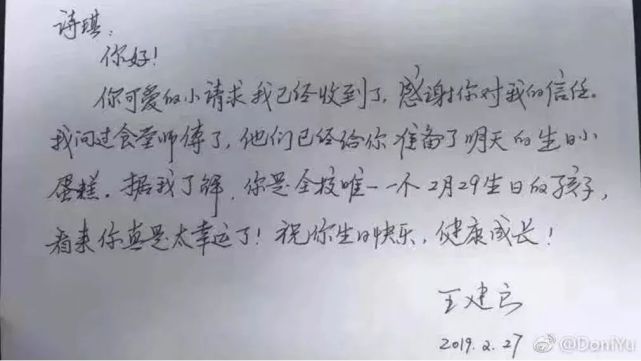 诗琪:
你好!
你可爱的小请求我已经收到了,感谢你对我的信任.
我问过食堂师傅了,他们已经给你准备了明天的生日小
蛋糕.据我了解,你是全校唯一一个2月29生日的孩子,
看来你真是太幸运了!祝你生日快乐,健康成长!
王建
2019.2.27
@DoniYu